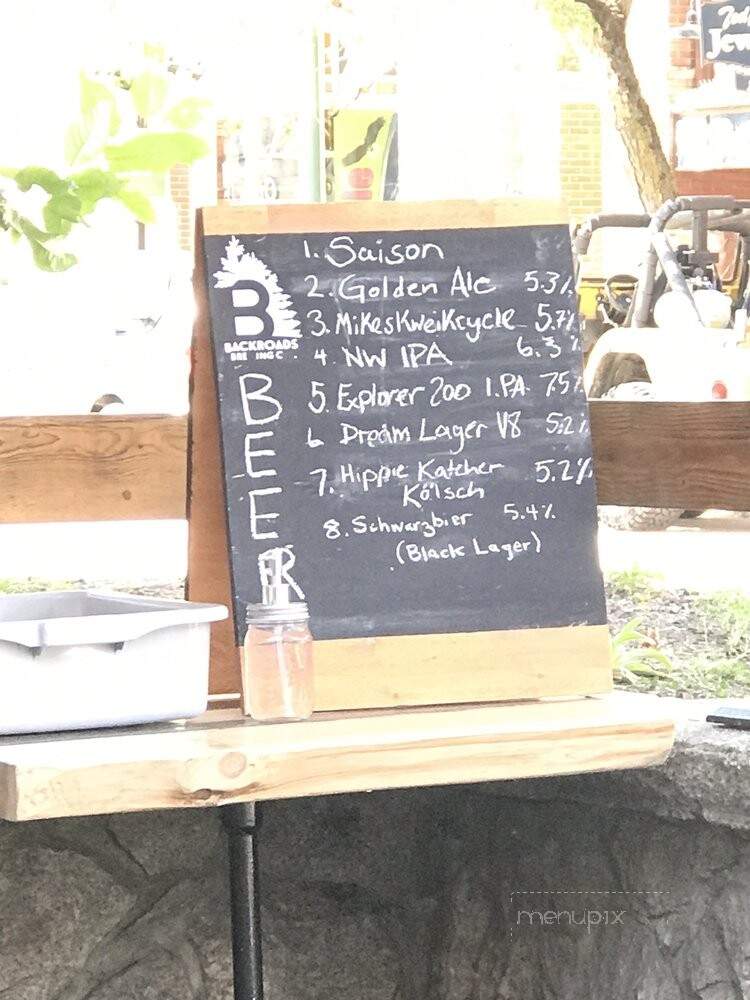 1. Saison
2. Golden Ale 5.3%
3. MikesKweiKcycle 5.7%
4 NW IPA 6.3%
5. Explorer 200 I.PA. 7.5%
6 Dream Lager V8 5.2%
7. Hippie Katcher 5.2%
Kölsch
8. Schwarzbier 5.4%
(Black Lager)
B
BACKROADS
BRE ING C
BEER
menupix